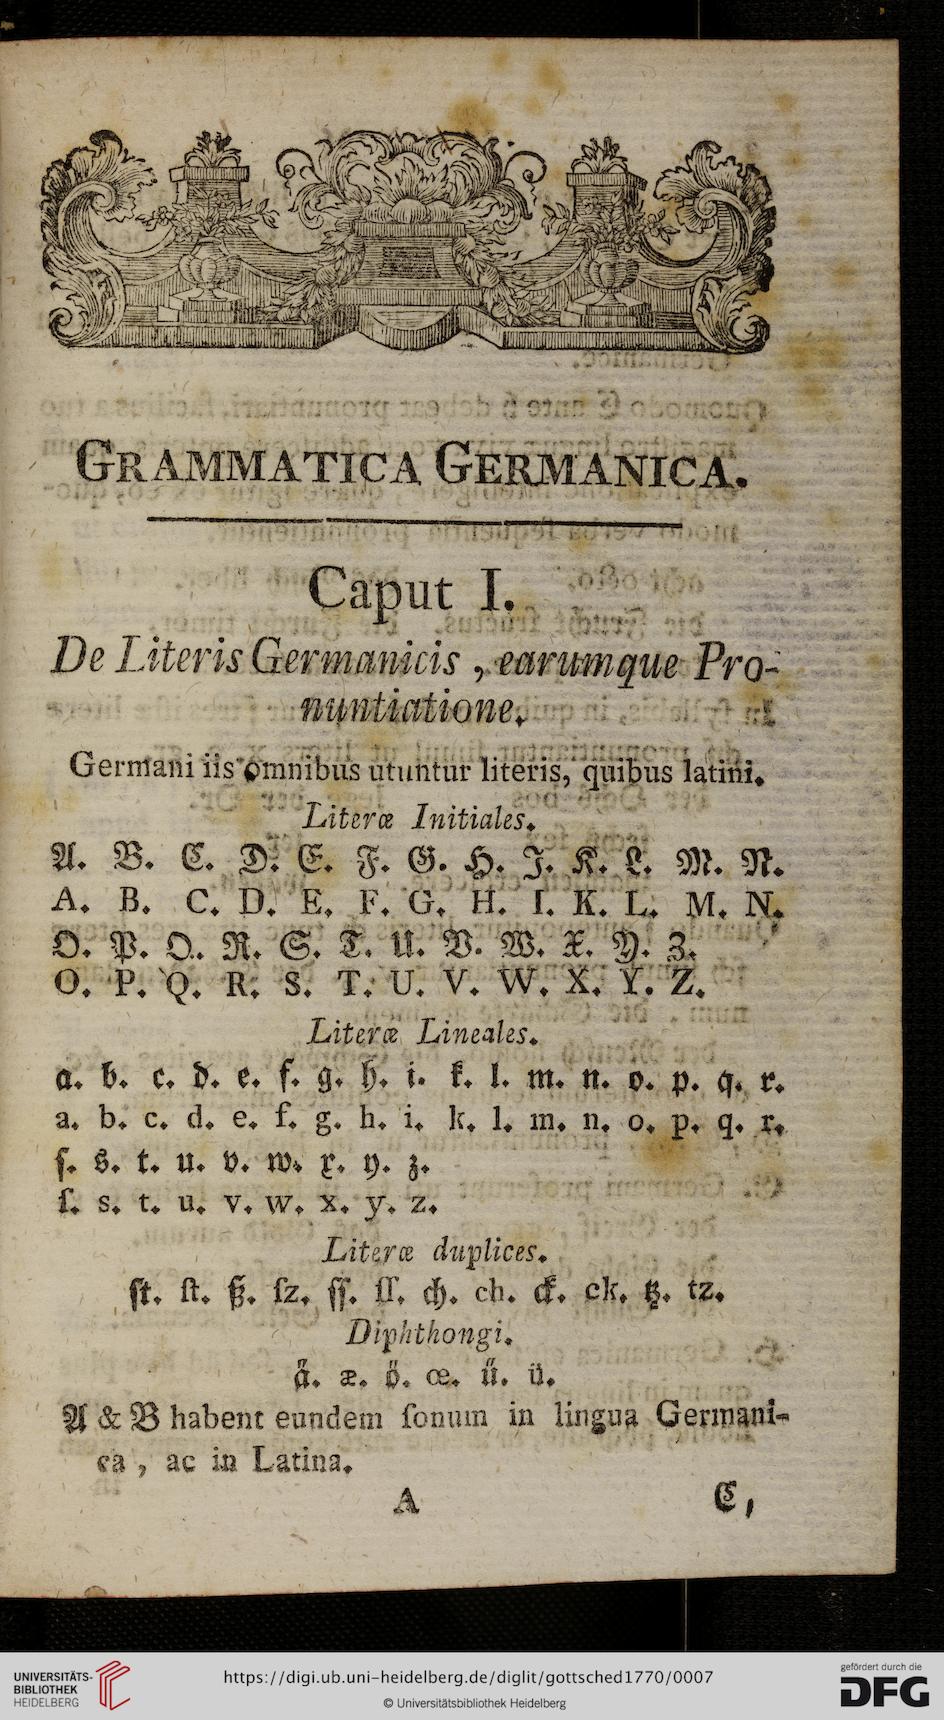 GRAMMATICA GERMANICA.
Caput I.
De Literis Germanicis , earumque Pro-
nuntiatione.
Germani iis omnibus utuntur literis, quibus latini.
Literæ Initiales.
A. B. C. D. E. F. G. H. I. K. L. M. N.
A. B. C. D. E. F. G. H. I. K. L. M. N.
O. P. Q. R. S. T. U. V. W. X. Y. Z.
O. P. Q. R. S. T. U. V. W. X. Y. Z.
Literæ Lineales.
a. b. c. d. e. f. g. h. i. k. l. m. n. o. p. q. r.
a. b. c. d. e. f. g. h. i. k. l. m. n. o. p. q. r.
ſ. s. t. u. v. w. x. y. z.
ſ. s. t. u. v. w. x. y. z.
Literæ duplices.
ſt. ſt. ß. ſz. ſſ. ſſ. ch. ch. ck. ck. tz. tz.
Diphthongi.
aͤ. æ. oͤ. œ. uͤ. ü.
A & B habent eundem ſonum in lingua Germani-
ca , ac in Latina.
A C,
UNIVERSITÄTS-
BIBLIOTHEK
HEIDELBERG
https://digi.ub.uni-heidelberg.de/diglit/gottsched1770/0007
© Universitätsbibliothek Heidelberg
gefördert durch die
DFG